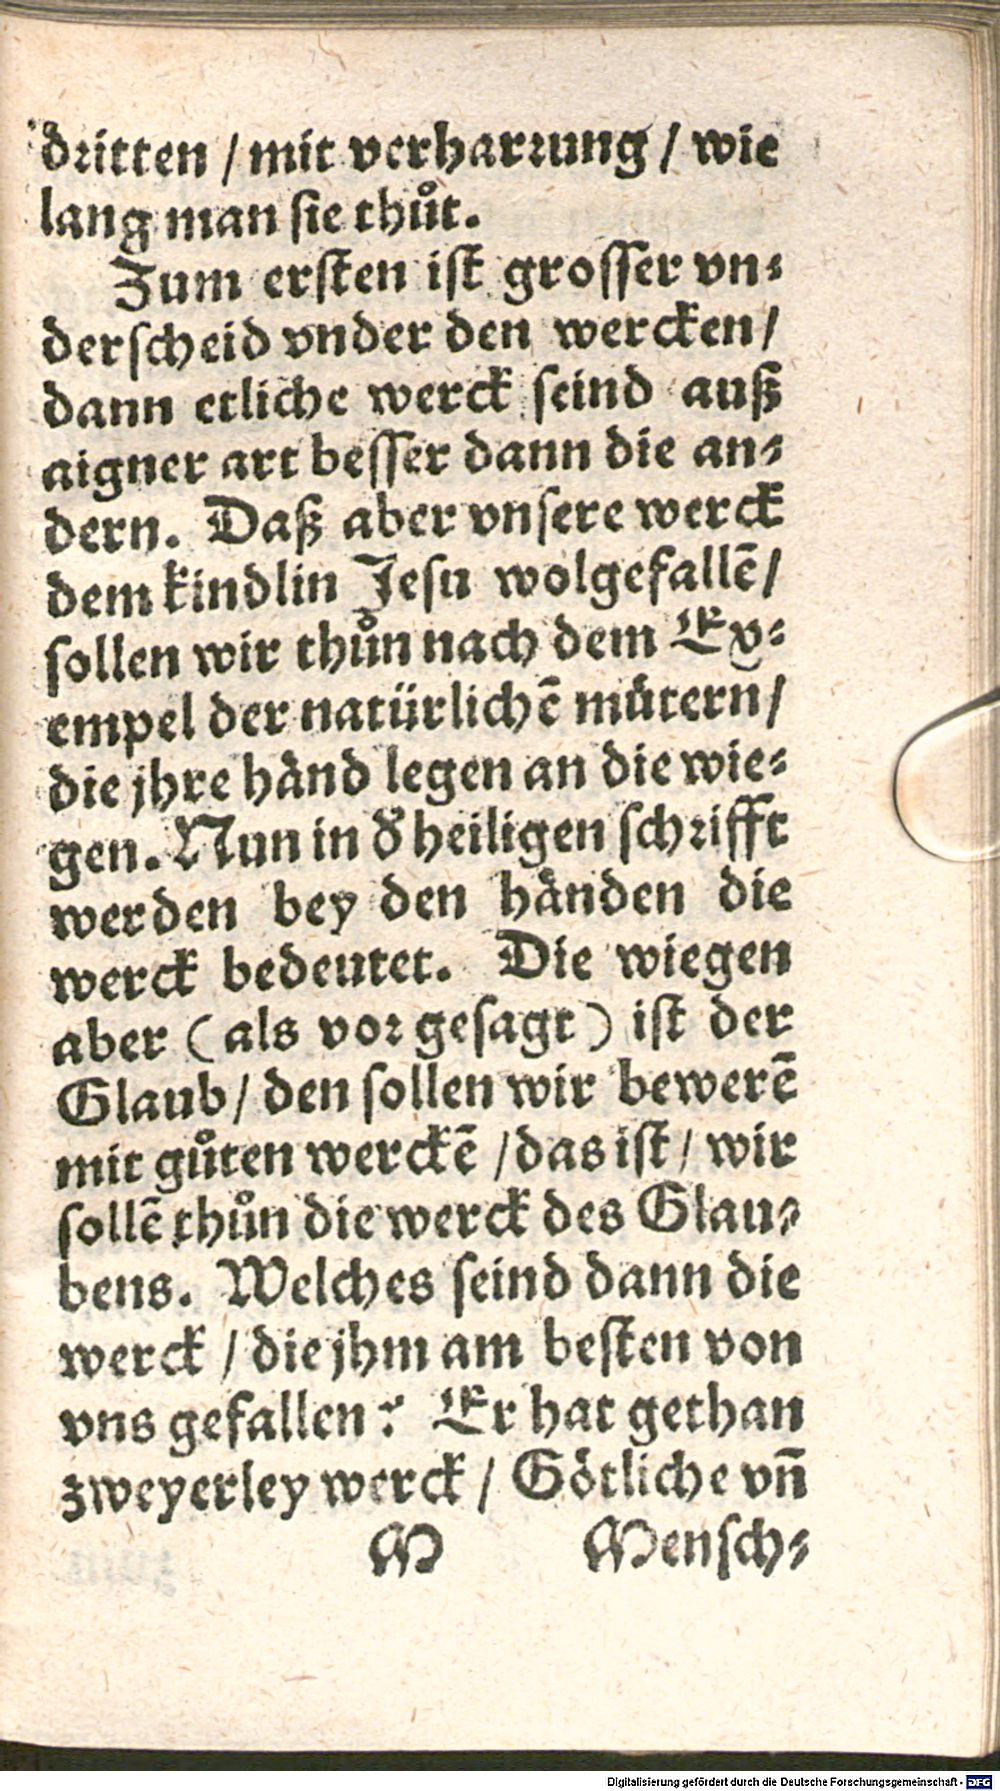 dritten / mit verharrung / wie
lang man ſie thuͦt.
Zum erſten iſt groſſer vn⸗
derſcheid vnder den wercken /
dann etliche werck ſeind auß
aigner art beſſer dann die an⸗
dern. Daß aber vnſere werck
dem kindlin Jeſu wolgefallē /
ſollen wir thuͦn nach dem Ex⸗
empel der natürlichē müͤtern /
die jhre haͤnd legen an die wie⸗
gen. Nun in d' heiligen ſchrifft
werden bey den haͤnden die
werck bedeutet. Die wiegen
aber (als vor geſagt) iſt der
Glaub / den ſollen wir bewerē
mit guͦten werckē / das iſt / wir
ſollē thuͦn die werck des Glau⸗
bens. Welches ſeind dann die
werck / die jhm am beſten von
vns gefallen? Er hat gethan
zweyerley werck / Goͤtliche vn̄
M Menſch⸗
Digitalisierung gefördert durch die Deutsche Forschungsgemeinschaft - DFG